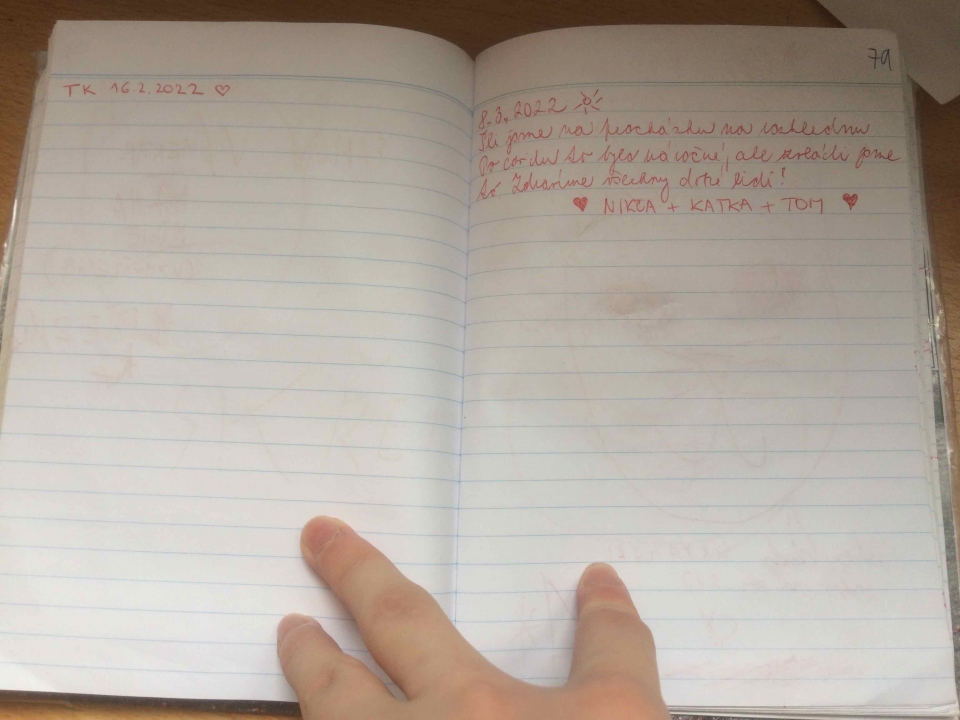 TK 16.2.2022 ♡
79
8.3.2022
Šli jsme na procházku na rozhlednu
Po covidu to bylo náročné, ale zvládli jsme
to Zdravíme všechny dobré lidi!
♥ NIKČA + KATKA + TOM ♥